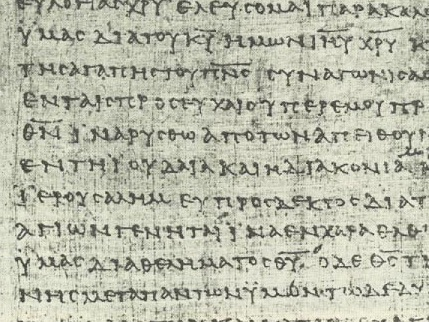 ΕΥΛΟΓΙΑϹ ΧΡΥ ΕΛΕΥϹΟΜΑΙ ΠΑΡΑΚΑΛ
ΥΜΑϹ ΔΙΑ ΤΟΥ Κ̅Υ̅ ΗΜΩΝ Ι̅Η̅Υ̅ Χ̅Ρ̅Υ̅ Κ
ΤΗϹ ΑΓΑΠΗϹ ΤΟΥ Π̅Ν̅Ϲ̅ ϹΥΝΑΓΩΝΙϹΑϹ
ΕΝ ΤΑΙϹ ΠΡΟϹΕΥΧΑΙϹ ΥΠΕΡ ΕΜΟΥ ΠΡ
Θ̅Ν̅ ΙΝΑ ΡΥϹΘΩ ΑΠΟ ΤΩΝ ΑΠΕΙΘΟΥΝ
ΕΝ ΤΗΙ ΙΟΥΔΑΙΑ ΚΑΙ Η ΔΙΑΚΟΝΙΑ
ΙΕΡΟΥϹΑΛΗΜ ΕΥΠΡΟϹΔΕΚΤΟϹ ΔΙΑ Τ
ΑΓΙΩΝ ΓΕΝΗΤΑΙ ΙΝΑ ΕΝ ΧΑΡΑ ΕΛΘ
ΥΜΑϹ ΔΙΑ ΘΕΛΗΜΑΤΟϹ Θ̅Υ̅ Ο ΔΕ Θ̅Ϲ̅ Τ
ΝΗϹ ΜΕΤΑ ΠΑΝΤΩΝ ΥΜΩΝ ΤΩ ΔΕ ΔΥ